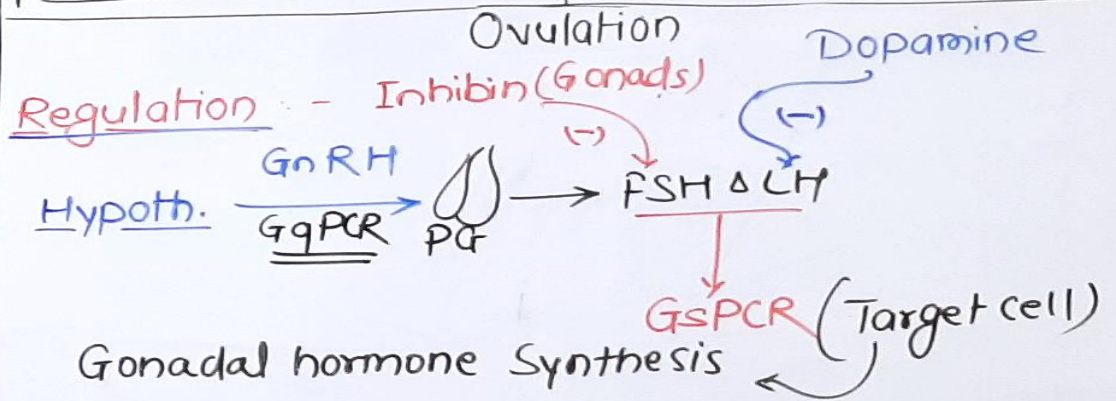 Ovulation
Dopamine
Regulation :- Inhibin (Gonads)
(-) (-)
GnRH
Hypoth. FSH & LH
GqPCR PG
GsPCR (Target cell)
Gonadal hormone Synthesis